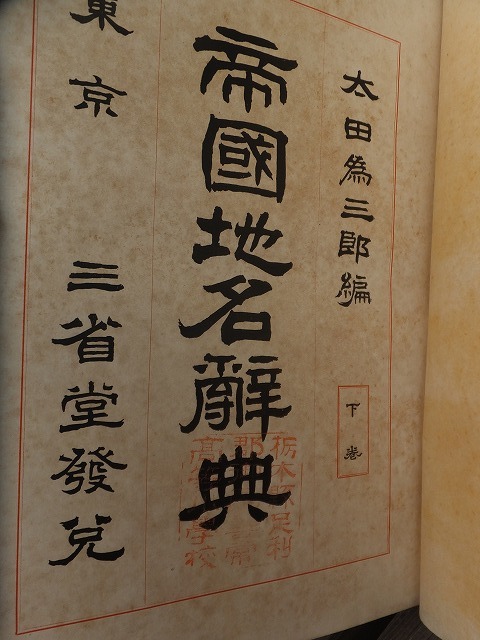 太田為三郎編
下巻
帝國地名辭典
東京 三省堂發兌
栃木縣足利